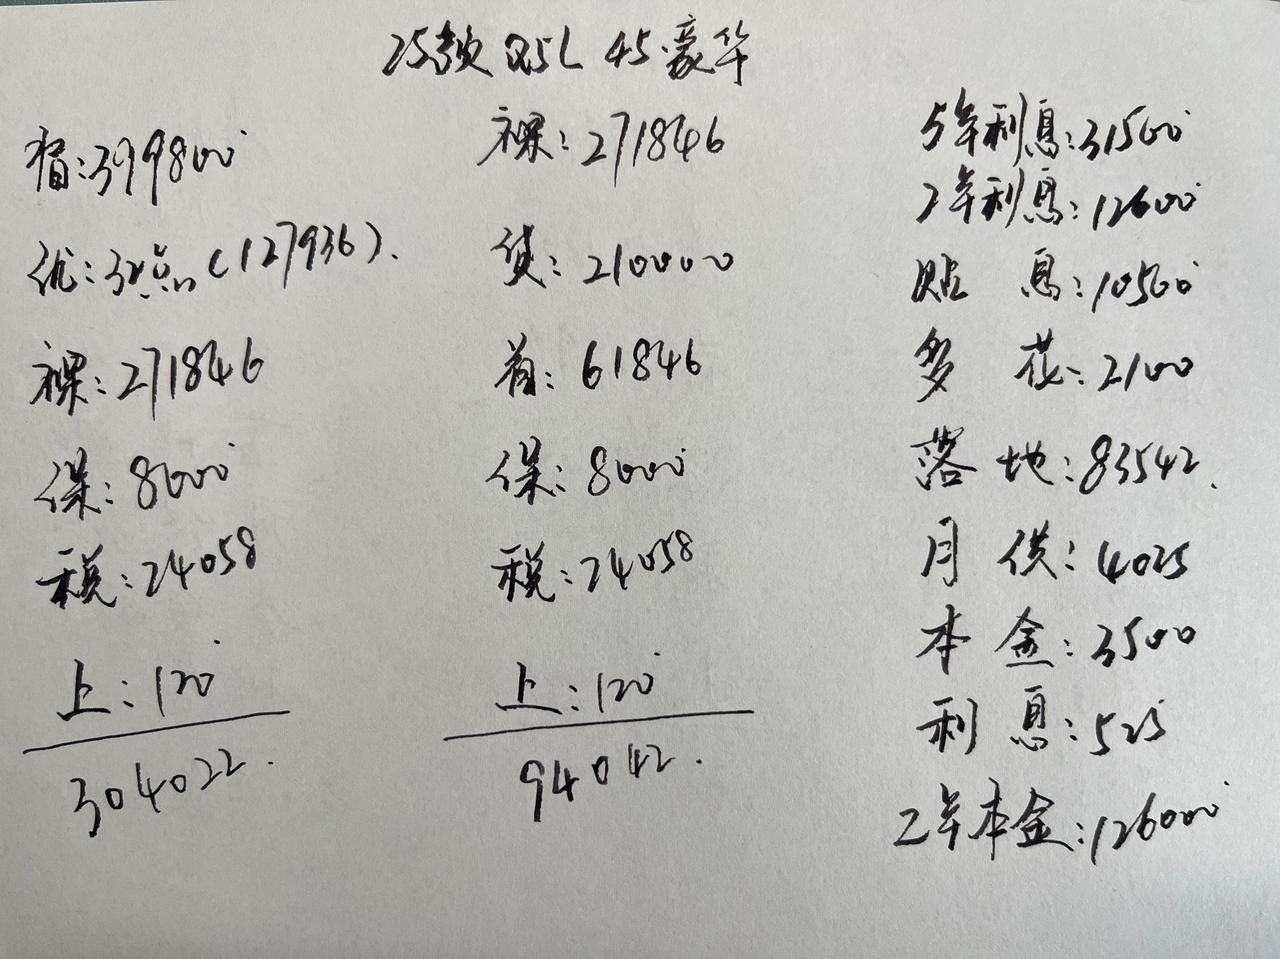 25款 Q5L 45豪华
指:399800
优:32点(127936).
裸:271846
保:8000
税:24058
上:120
304022.
裸:271846
贷:210000
首:61846
保:8000
税:24058
上:120
94042.
5年利息:31500
2年利息:12600
贴息:10500
多花:2100
落地:83542.
月供:4025
本金:3500
利息:525
2年本金:126000